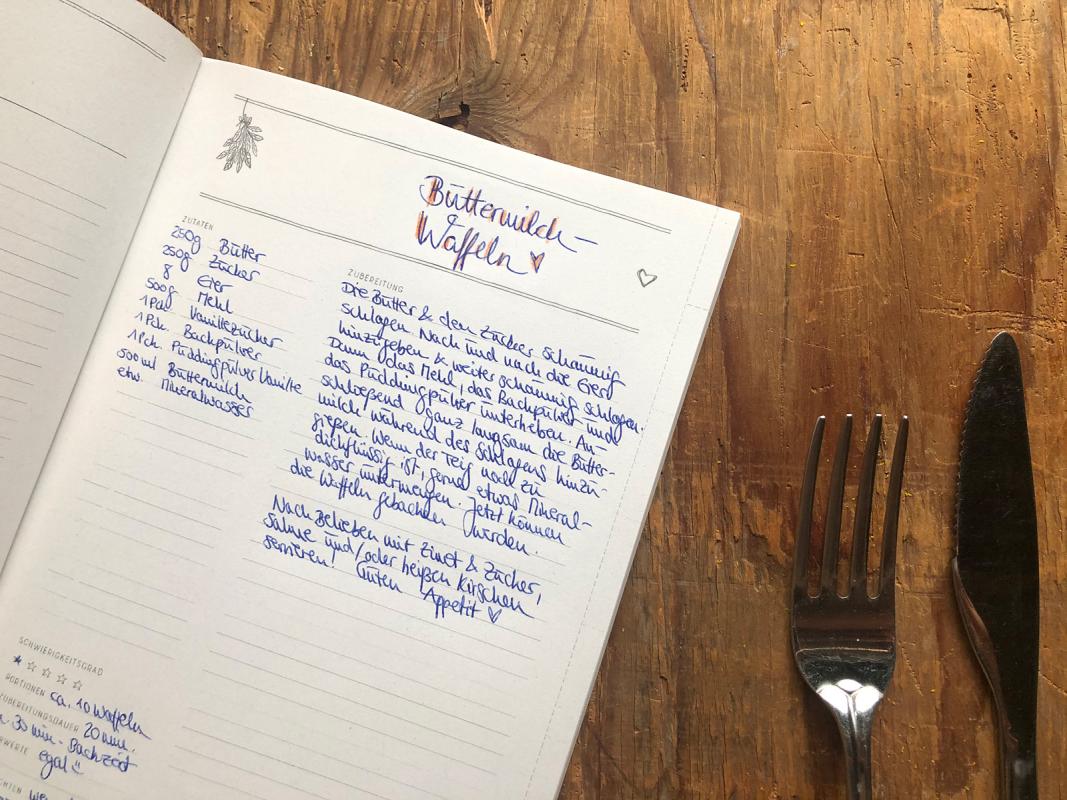 Buttermilch-
Waffeln
ZUTATEN
250g Butter
250g Zucker
8 Eier
500g Mehl
1Pck. Vanillezucker
1Pck. Backpulver
1Pck. Puddingpulver Vanille
500ml Buttermilch
etw. Mineralwasser
ZUBEREITUNG
Die Butter & den Zucker schaumig
schlagen. Nach und nach die Eier
hinzugeben & weiter schaumig schlagen.
Dann das Mehl, das Backpulver und
das Puddingpulver unterheben. An-
schließend ganz langsam die Butter-
milch während des Schlagens hinzu-
gießen. Wenn der Teig noch zu
dickflüssig ist, gerne etwas Mineral-
wasser untermengen. Jetzt können
die Waffeln gebacken werden.
Nach Belieben mit Zimt & Zucker,
Sahne und/oder heißen Kirschen
servieren! Guten Appetit
SCHWIERIGKEITSGRAD
PORTIONEN ca. 10 Waffeln
ZUBEREITUNGSDAUER 20 min.
30 min. Backzeit
egal